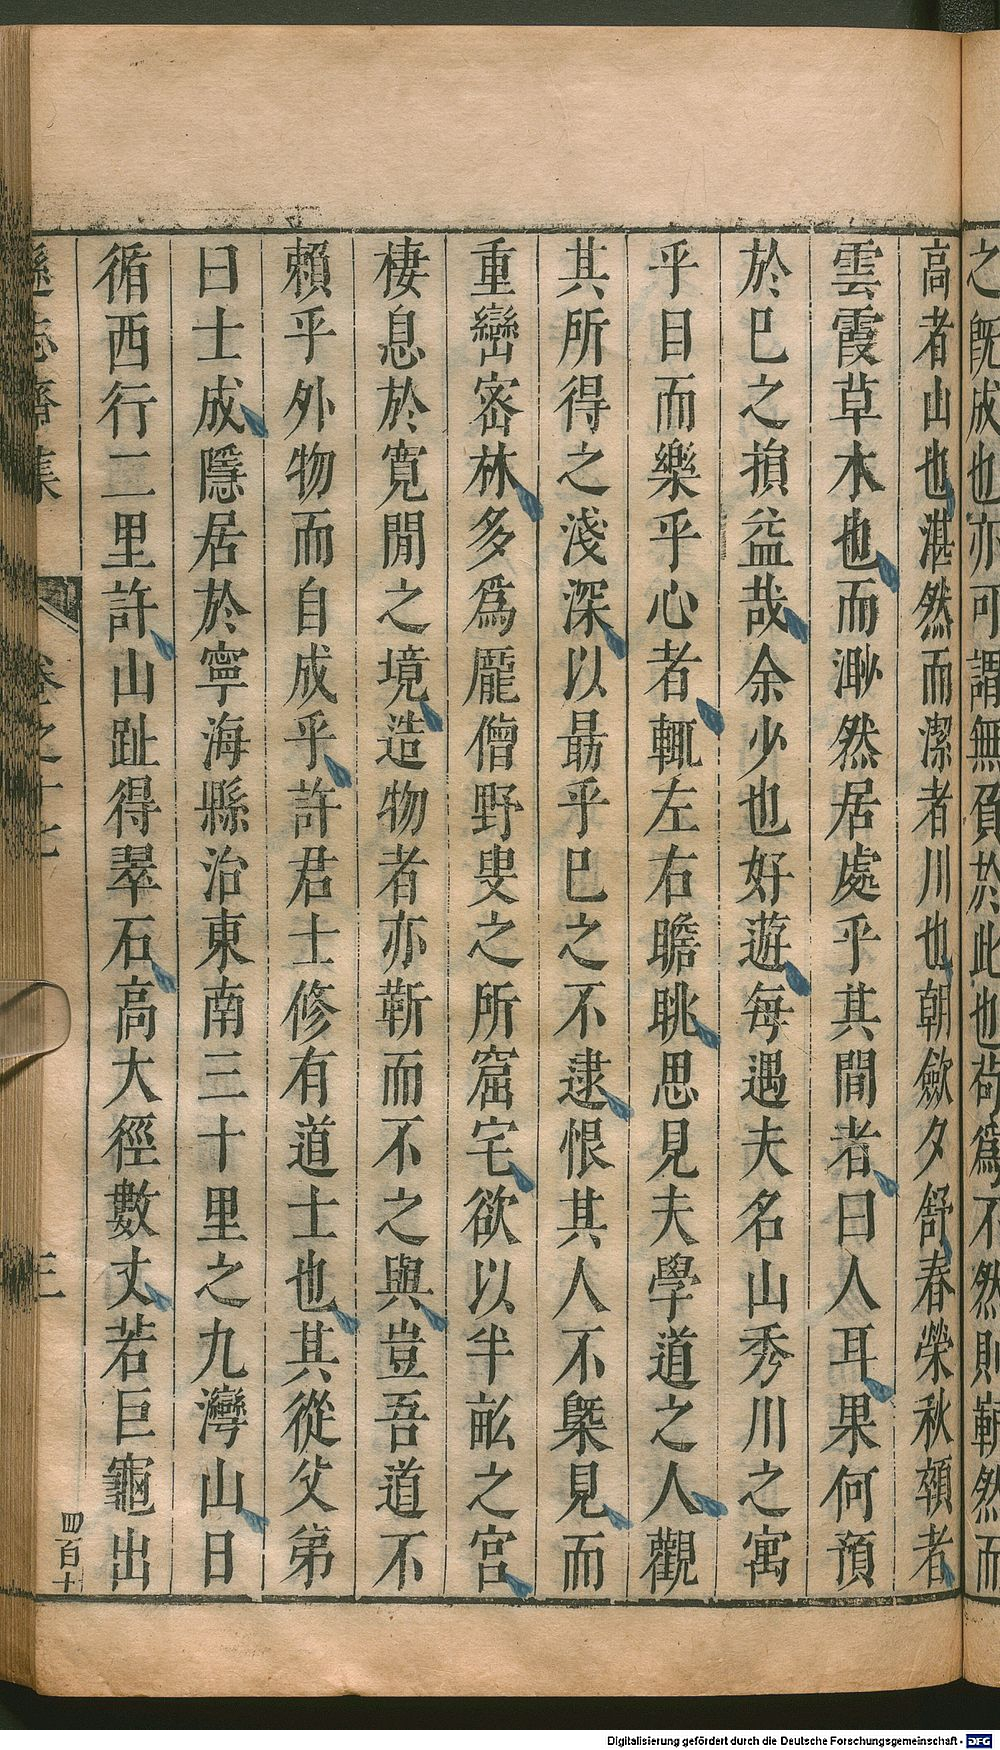 之旣成也亦可謂無負於此也苟爲不然則嶄然而
高者山也湛然而潔者川也朝歛夕舒春榮秋頹者
雲霞草木也而渺然居處乎其間者曰人耳果何預
於巳之損益哉余少也好遊每遇夫名山秀川之寓
乎目而樂乎心者輒左右瞻眺思見夫學道之人觀
其所得之淺深以朂乎巳之不逮恨其人不槩見而
重巒密林多爲龎僧野叟之所窟宅欲以半畝之宮
棲息於寬閒之境造物者亦靳而不之與豈吾道不
賴乎外物而自成乎許君士修有道士也其從父弟
曰士成隱居於寧海縣治東南三十里之九灣山日
循西行二里許山趾得翠石高大徑數丈若巨龜出
遜志齋集 卷之十七 三
四百十
Digitalisierung gefördert durch die Deutsche Forschungsgemeinschaft - DFG